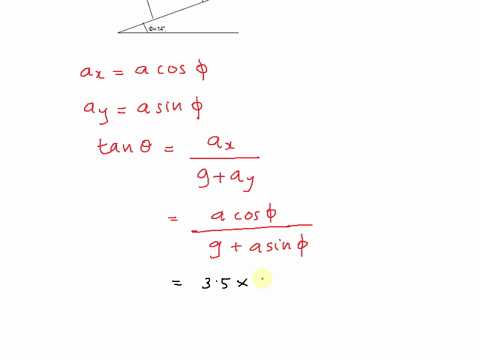 Φ=14°
ax = a cos ϕ
ay = a sin ϕ
tan θ = ax / g + ay
= a cos ϕ / g + a sin ϕ
= 3.5 ×